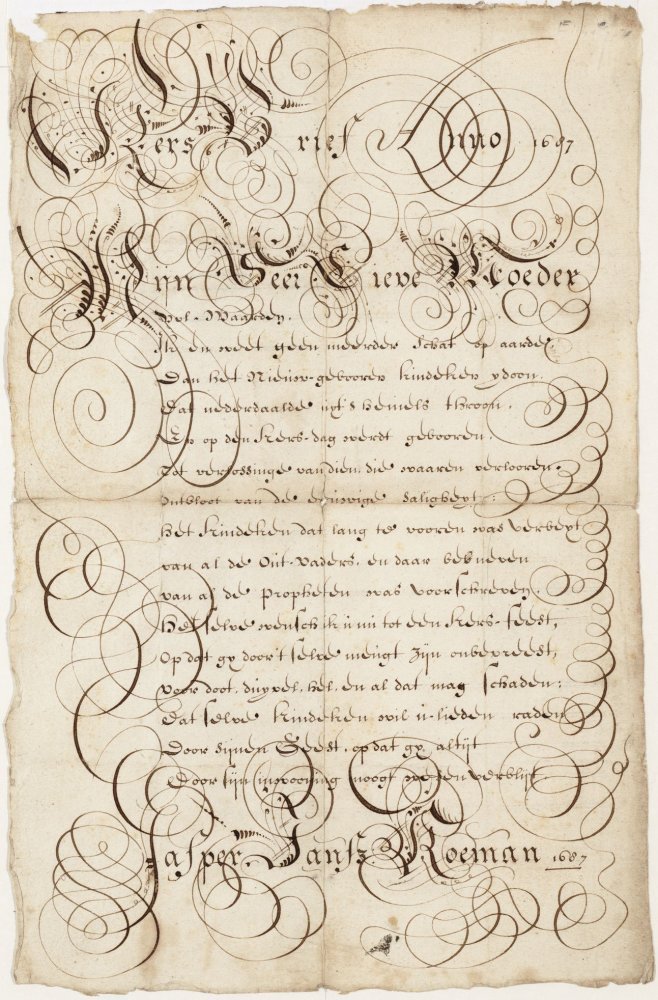 Kers Brief Anno 1697
Mijn Seer Lieve Moeder
vol-Waarden.
Ik en weet geen meerder schat op aarde,
Dan het Nieuw-gebooren kindeken ydoon.
Dat nederdaalde uyt's hemels throon.
En op den Kers-dag werdt gebooren.
Tot verlossinge van dien, die waaren verlooren.
Ontbloot van de eeuwige saligheyt:
Het kindeken dat lang te vooren was verbeyt
van al de Out-vaders, en daar beneven
van al de Propheten was voorschreven.
Het selve wensch ik u nu tot een Kers-feest,
Op dat gy door't selve meugt zijn onbevreest,
voor doot, duyvel, hel, en al dat mag schaden:
Dat selve kindeken wil u-lieden raden
Door sijnen Geest, op dat gy altijt
Door sijn inwooning moogt wesen verblijt.
Jasper Jansz Koeman 1697